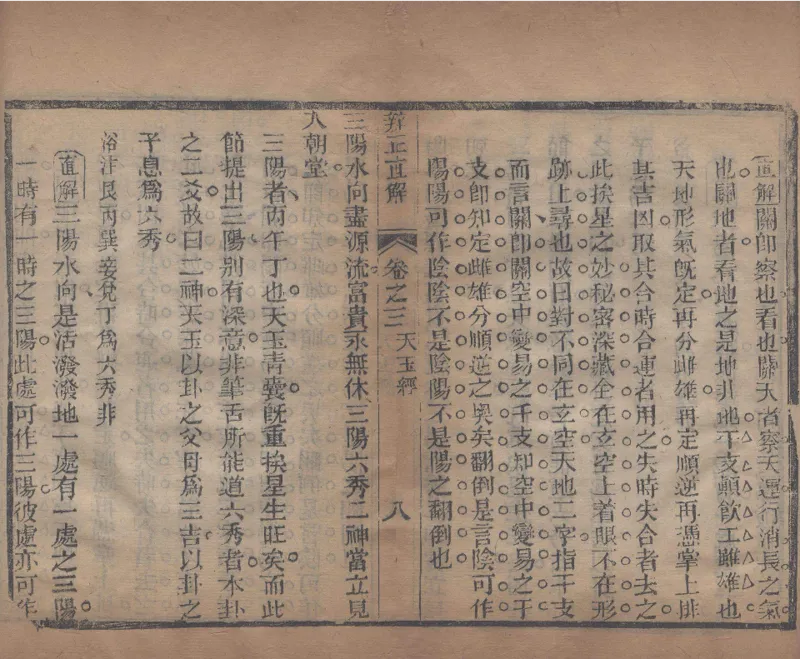 直解關卽察也看也關天者察天運行消長之氣
也關地者看地之是地非地干支顛飲工雌雄也
天地形氣旣定再分雌雄再定順逆再憑掌上排
其吉凶取其合時合運者用之失時失合者去之
此挨星之妙秘密深藏全在玄空上着眼不在形
跡上尋也故曰對不同在玄空天地二字指干支
而言關卽關空中變易之干支知空中變易之干
支卽知定雌雄分順逆之奥矣翻倒是言陰可作
陽陽可作陰陰不是陰陽不是陽之翻倒也
辨正直解 卷之三 天玉經 八
三陽水向盡源流富貴永無休三陽六秀二神當立見
入朝堂
三陽者丙午丁也天玉靑囊旣重挨星生旺矣而此
節提出三陽别有深意非筆舌所能道六秀者本卦
之二爻故曰二神天玉以卦之父母爲三吉以卦之
子息爲六秀
俗註艮丙巽辛兌丁爲六秀非
直解三陽水向是活潑潑地一處有一處之三陽
一時有一時之三陽此處可作三陽彼處亦可作